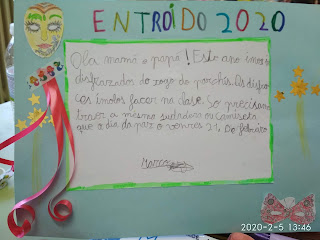 ENTROIDO 2020
Ola mamá e papá! Este ano imos ir
disfrazados do xogo do parchís. Os disfra-
ces imolos facer na clase. So precisamos
traer a mesma sudadera ou camiseta
que o día do paz o venres 21 De febreiro
Marcos
2020-2-5 13:46